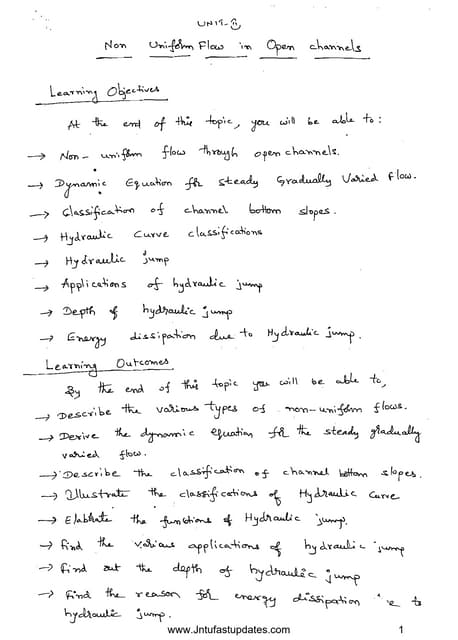 UNIT-II
Non Uniform Flow in Open channels
Learning Objectives
At the end of this topic, you will be able to:
→ Non-uniform flow through open channels.
→ Dynamic Equation for steady Gradually Varied Flow.
→ Classification of channel bottom slopes.
→ Hydraulic Curve classifications
→ Hydraulic jump
→ Applications of hydraulic jump
→ Depth of hydraulic jump
→ Energy dissipation due to Hydraulic jump.
Learning Outcomes
By the end of this topic you will be able to,
→ Describe the various types of non-uniform flows.
→ Derive the dynamic equation for the steady gradually
varied flow.
→ Describe the classification of channel bottom slopes.
→ Illustrate the classifications of Hydraulic Curve
→ Elaborate the functions of Hydraulic jump.
→ Find the various applications of hydraulic jump
→ Find out the depth of hydraulic jump
→ Find the reason for energy dissipation e to
hydraulic jump.
www.Jntufastupdates.com 1